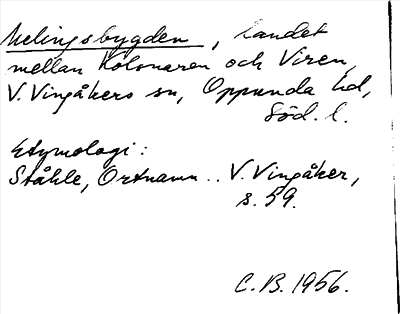 Melingsbygden, landet
mellan Kolsnaren och Viren,
V. Vingåkers sn, Oppunda hd,
Söd. l.
Etymologi:
Ståhle, Ortnamn .. V. Vingåker,
s. 59.
C.B. 1956.